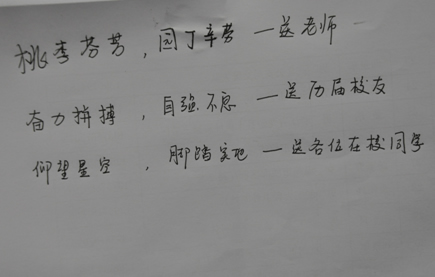 桃李芬芳，园丁辛劳—送老师
奋力拼搏，自强不息—送历届校友
仰望星空，脚踏实地—送各位在校同学